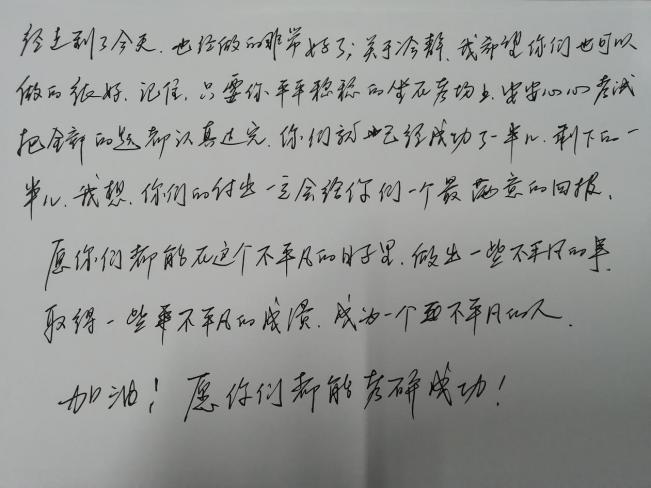 经走到了今天，也经做的非常好了；关于冷静，我希望你们也可以
做的很好。记住，只要你平平稳稳的坐在考场上，安安心心考试
把全部的题都认真达完，你们就也已经成功了一半儿，剩下的一
半儿，我想，你们的付出一定会给你们一个最满意的回报。
愿你们都能在这个不平凡的日子里，做出一些不平凡的事，
取得一些不平凡的成绩，成为一个不平凡的人。
加油！愿你们都能考研成功！